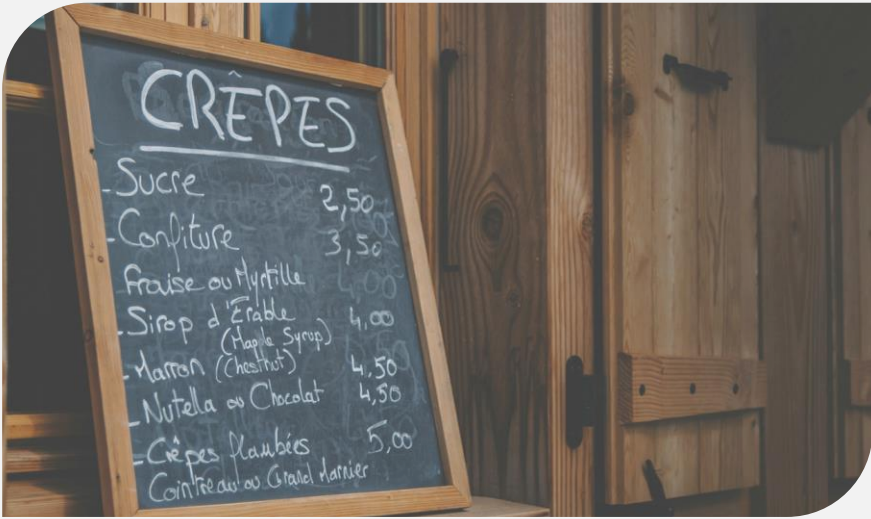 CRÊPES
- Sucre 2,50
- Confiture 3,50
Fraise ou Myrtille
- Sirop d'Érable 4,00
(Maple Syrup)
- Marron (Chestnut) 4,50
- Nutella ou Chocolat 4,50
- Crêpes flambées 5,00
Cointreau ou Grand Marnier